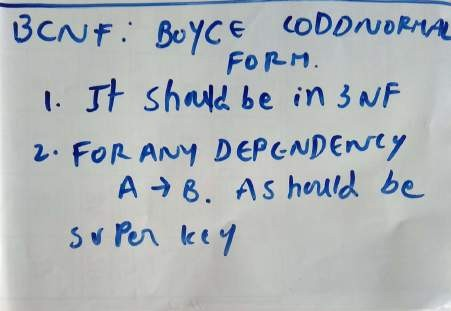 BCNF: BOYCE CODDNORMAL
FORM.
1. It should be in 3NF
2. FOR ANY DEPENDENCY
A → B. A should be
super key